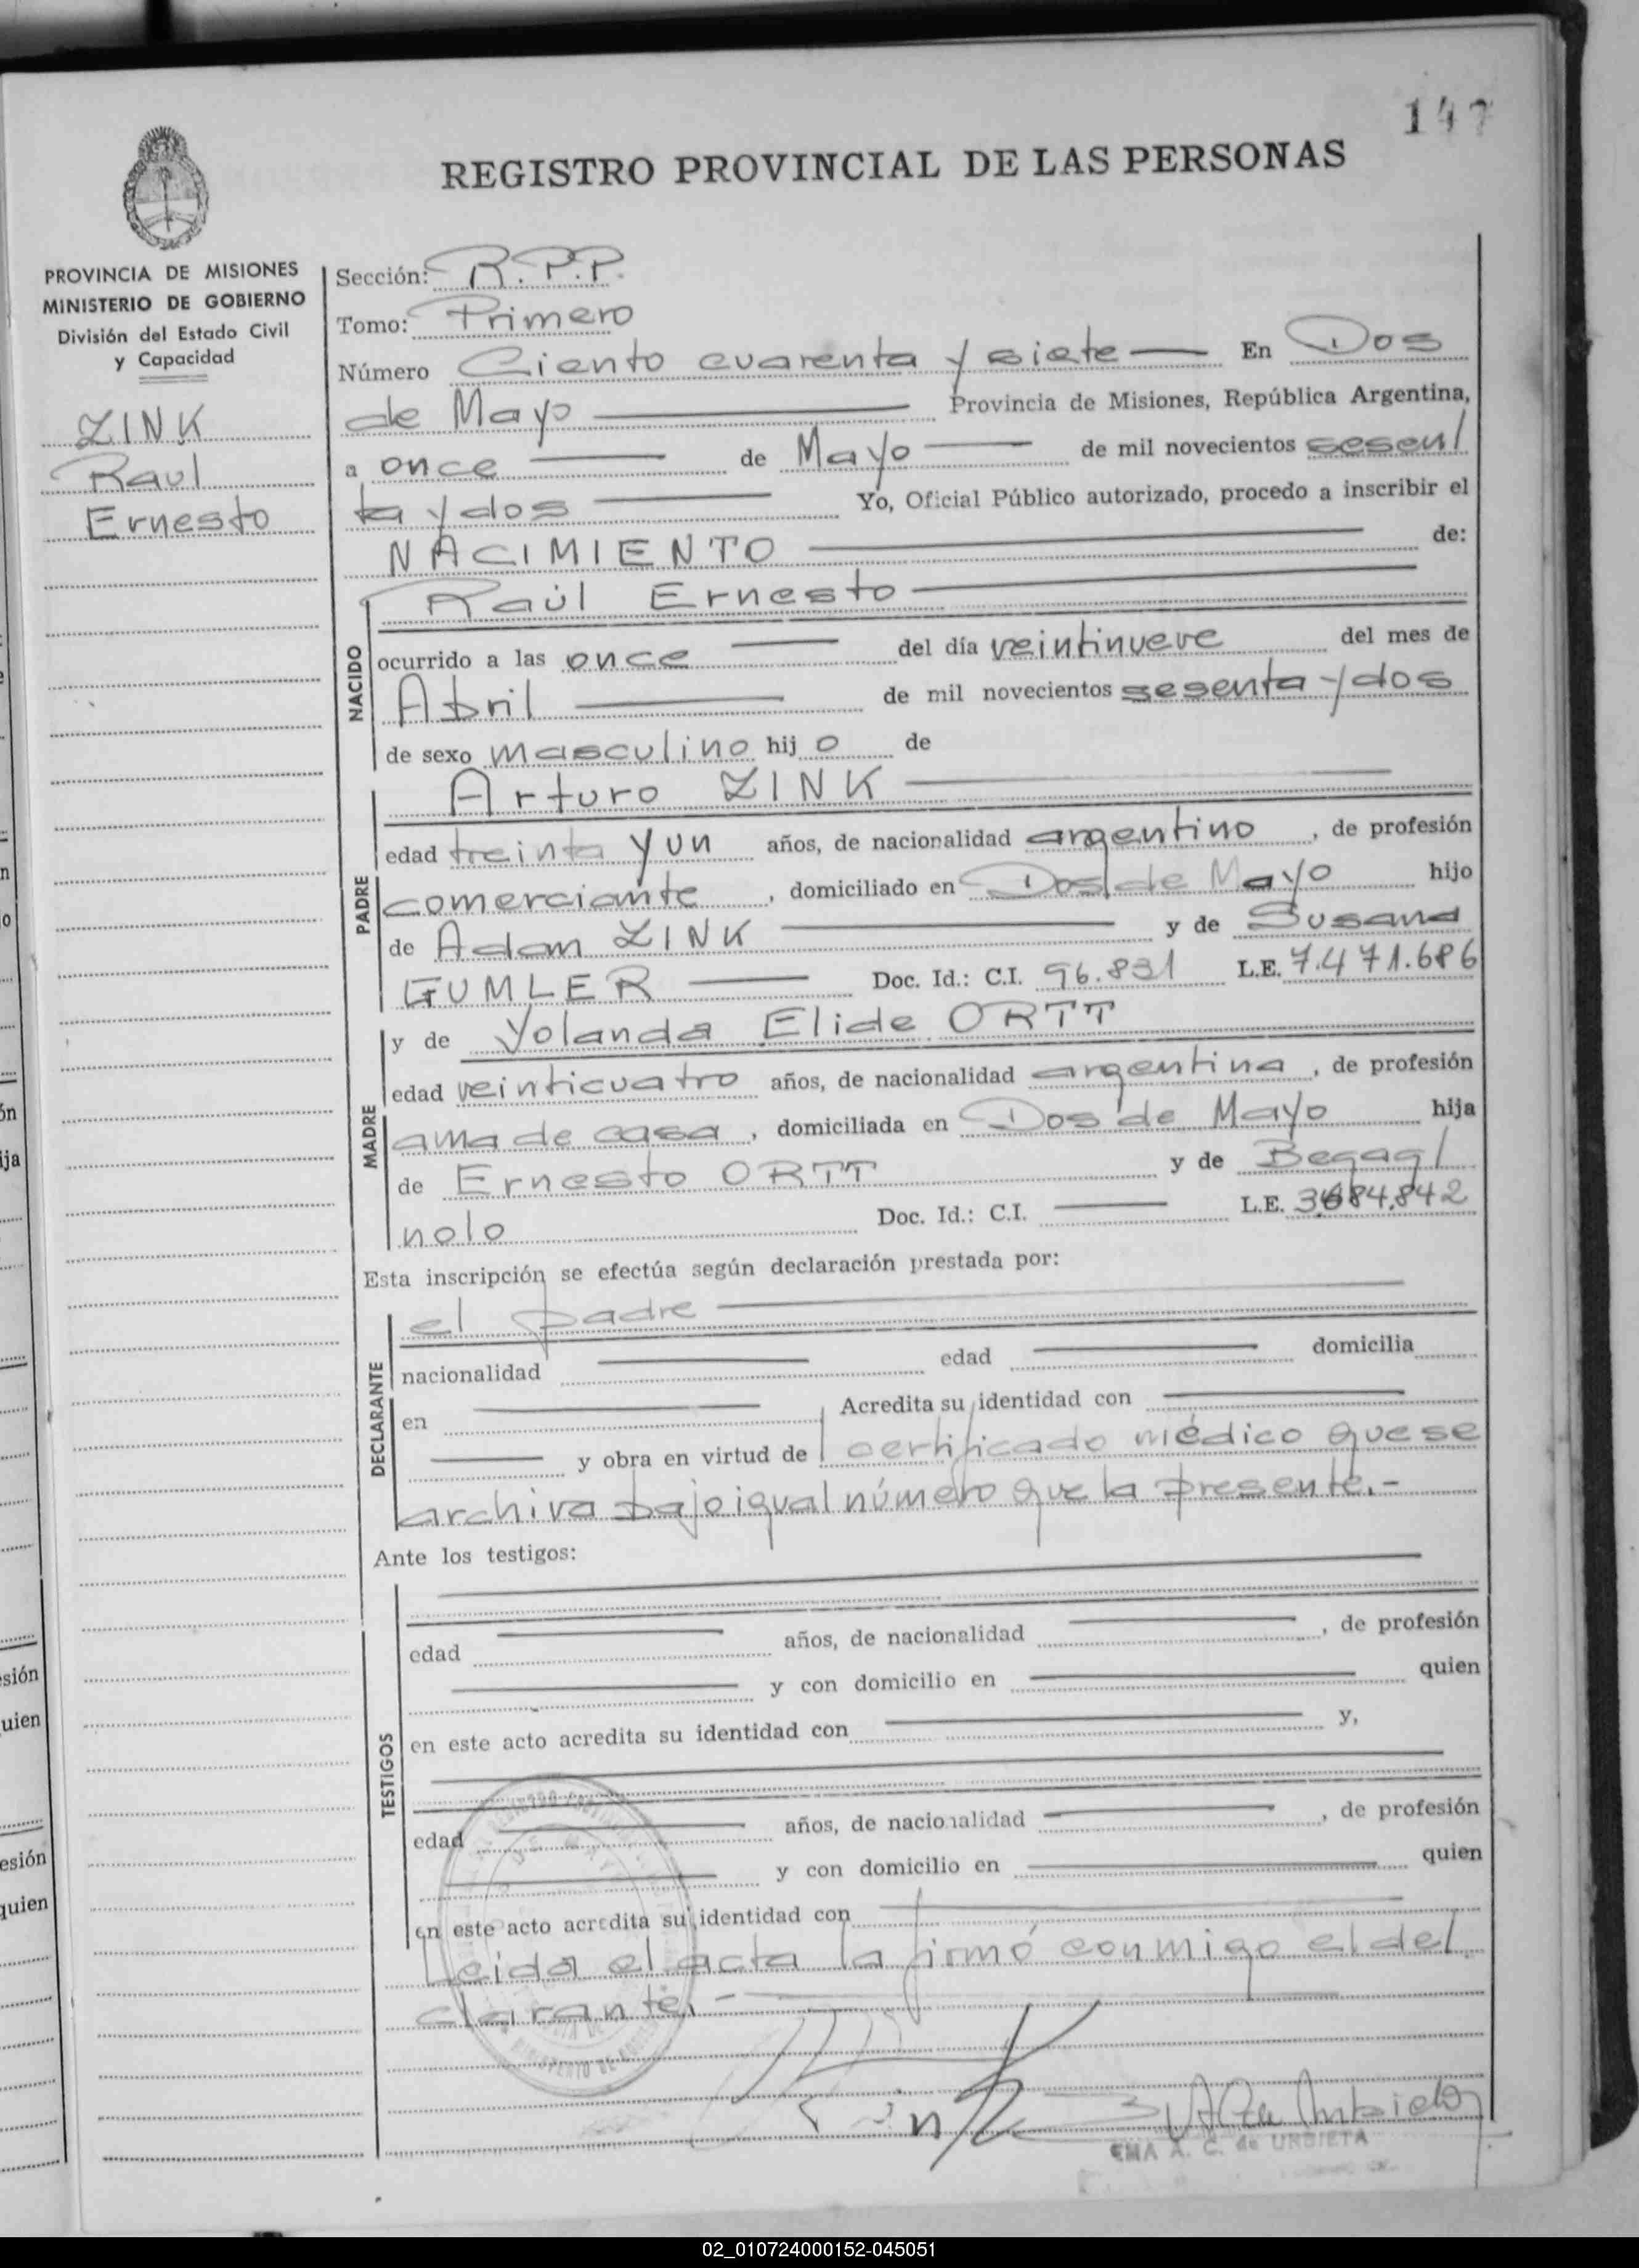 147
REGISTRO PROVINCIAL DE LAS PERSONAS
PROVINCIA DE MISIONES
MINISTERIO DE GOBIERNO
División del Estado Civil
y Capacidad
ZINK
Raul
Ernesto
Sección: R.P.P.
Tomo: Primero
Número Ciento cuarenta y siete — En Dos
de Mayo — Provincia de Misiones, República Argentina,
a once — de Mayo — de mil novecientos sesen/
ta y dos — Yo, Oficial Público autorizado, procedo a inscribir el
NACIMIENTO — de:
NACIDO
Raúl Ernesto —
ocurrido a las once — del día veintinueve del mes de
Abril — de mil novecientos sesenta y dos
de sexo masculino hij o de
PADRE
Arturo ZINK —
edad treinta y un años, de nacionalidad argentino, de profesión
comerciante, domiciliado en Dos de Mayo hijo
de Adam ZINK — y de Susana
GUMLER — Doc. Id.: C.I. 96.831 L.E. 7.471.686
MADRE
y de Yolanda Elide ORTT
edad veinticuatro años, de nacionalidad argentina, de profesión
ama de casa, domiciliada en Dos de Mayo hija
de Ernesto ORTT y de Begag/
nolo Doc. Id.: C.I. — L.E. 3684.842
Esta inscripción se efectúa según declaración prestada por:
DECLARANTE
el padre —
nacionalidad — edad — domicilia
en — Acredita su identidad con —
— y obra en virtud de certificado médico que se
archiva bajo igual número que la presente.-
Ante los testigos:
TESTIGOS
edad — años, de nacionalidad —, de profesión
— y con domicilio en — quien
en este acto acredita su identidad con — y,
edad — años, de nacionalidad —, de profesión
— y con domicilio en — quien
en este acto acredita su identidad con —
Leida el acta la firmó conmigo el de/
clarante.-
EMA A. C. de URBIETA
02_010724000152-045051